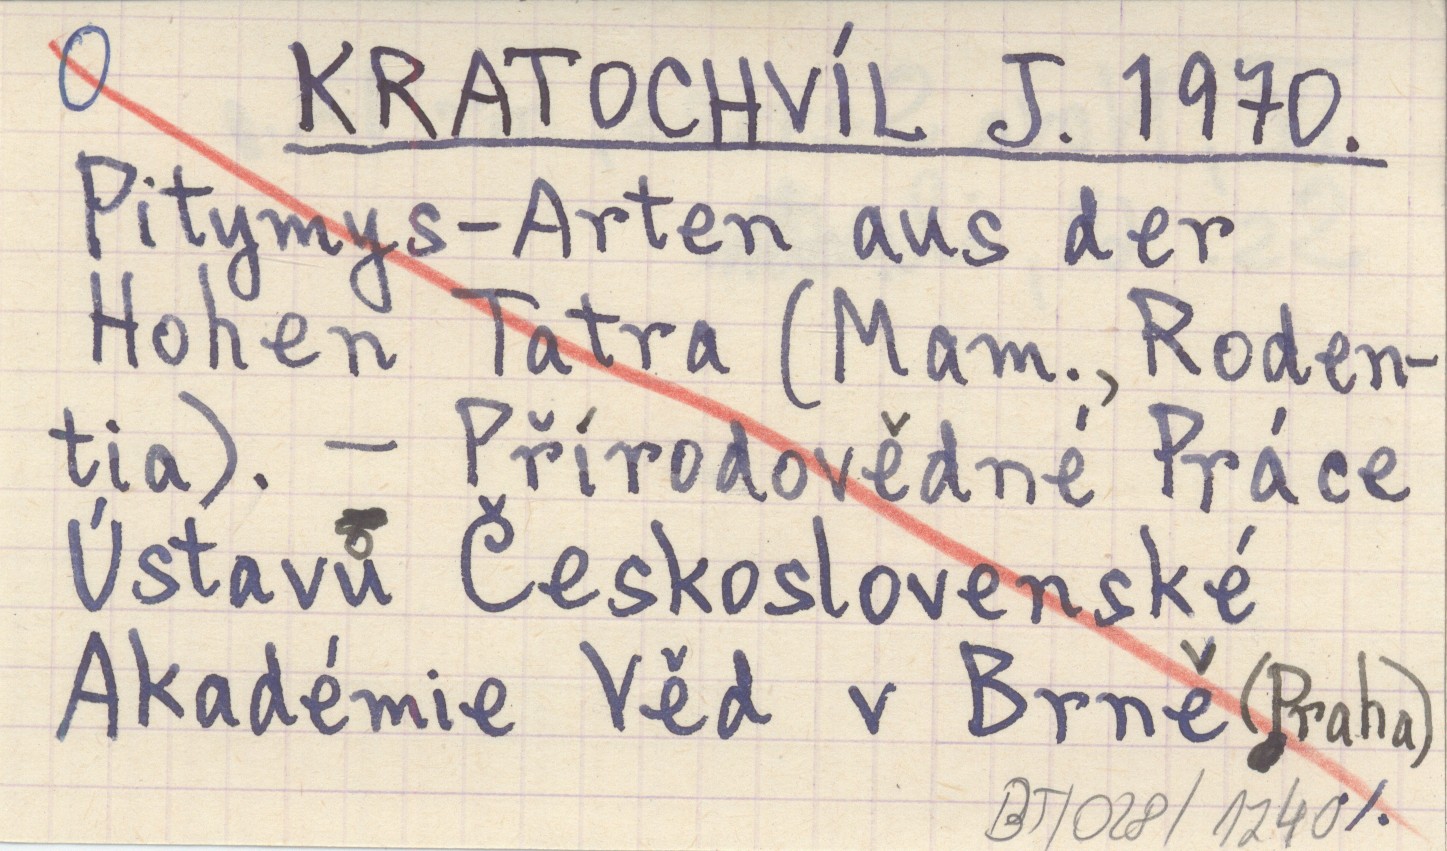 O KRATOCHVÍL J. 1970.
Pitymys-Arten aus der
Hohen Tatra (Mam., Roden-
tia). – Přírodovědné Práce
Ústavů Československé
Akadémie Věd v Brně (Praha)
BT/028/1240 ./.